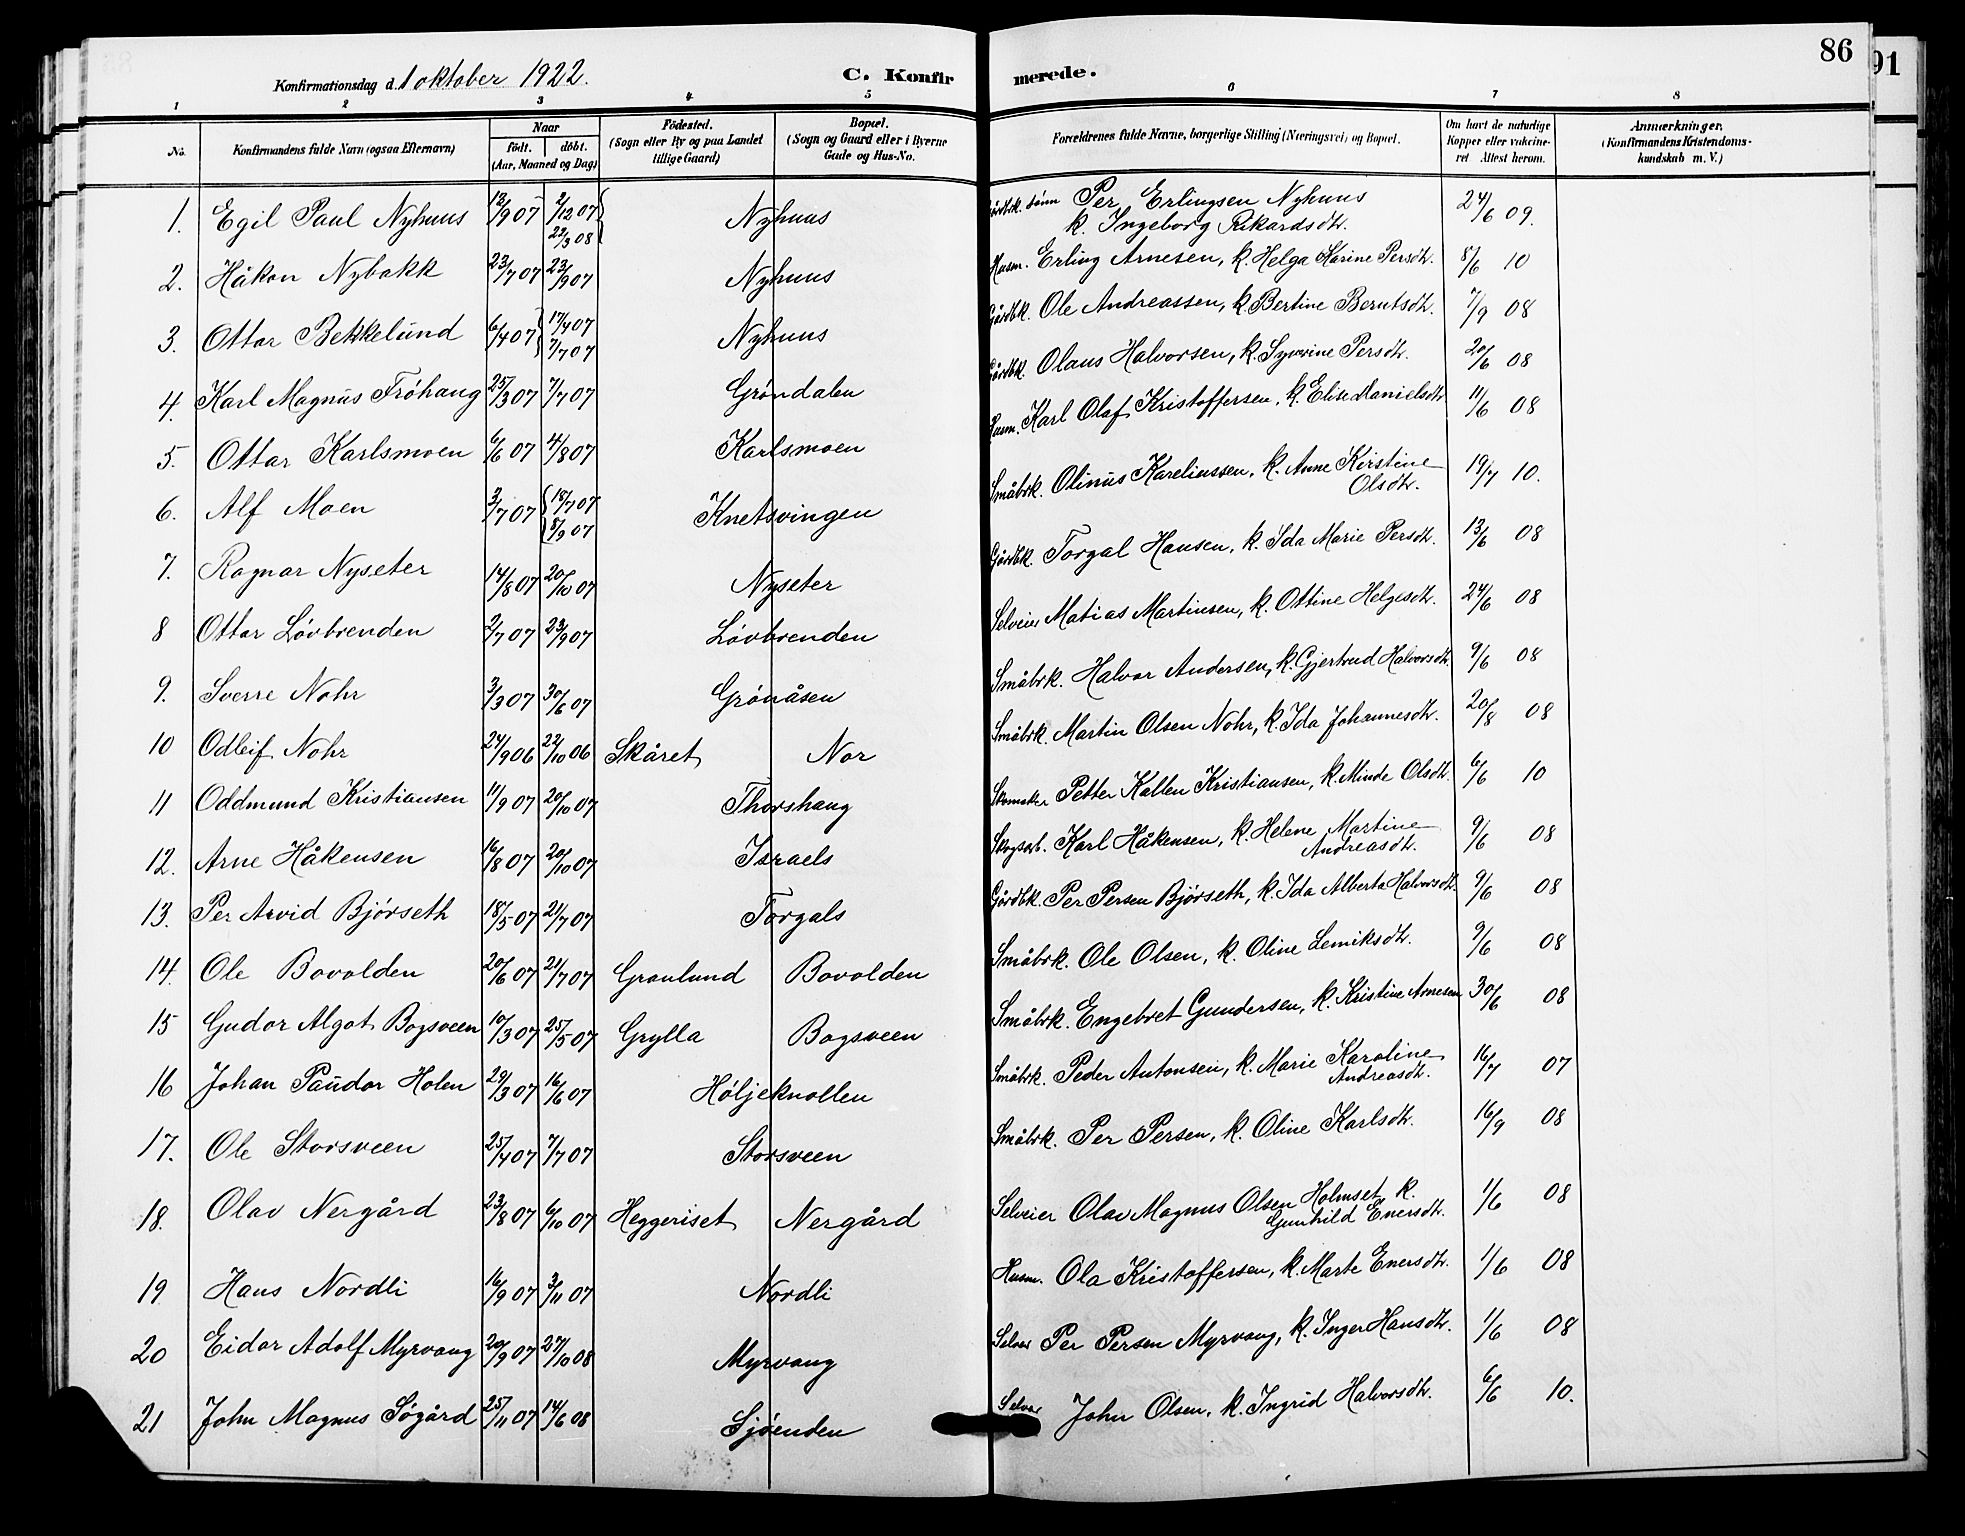 86
91
Konfirmationsdag d. 1 oktober 1922.
C. Konfirmerede.
1 2 3 4 5 6 7 8
No.
Konfirmandens fulde Navn (ogsaa Efternavn)
Naar
født. døbt.
(Aar, Maaned og Dag)
Fødested.
(Sogn eller By og paa Landet
tillige Gaard)
Bopæl.
(Sogn og Gaard eller i Byerne
Gade og Hus-No.
Forældrenes fulde Navne, borgerlige Stilling (Næringsvei) og Bopæl.
Om havt de naturlige
Kopper eller vakcine-
ret Attest herom.
Anmærkninger.
(Konfirmandens Kristendoms-
kundskab m. V.)
1. Egil Paul Nyhuus 12/9 07 2/12 07 22/3 08 Nyhuus Gårdbk. sønn Per Erlingsen Nyhuus 24/6 09.
k. Ingeborg Rikardsdtr.
2. Håkon Nybakk 23/7 07 23/9 07 Nyhuus Husm. Erling Arnesen, k. Helga Karine Persdtr. 8/6 10
3. Ottar Bekkelund 6/4 07 17/4 07 7/7 07 Nyhuus Gårdbk. Ole Andreassen, k. Bertine Berntsdtr. 7/9 08
4. Karl Magnus Frøhaug 25/3 07 7/7 07 Grøndalen Gårdbk. Olaus Halvorsen, k. Syverine Persdtr. 20/6 08
5. Ottar Karlsmoen 6/6 07 4/8 07 Karlsmoen Husm. Karl Olaf Kristoffersen, k. Elise Danielsdtr 11/6 08
6. Alf Moen 3/7 07 18/7 07 8/9 07 Knetsvingen Småbrk. Olinus Kareliussen, k. Anne Kirstine 19/7 10.
Olsdtr.
7. Ragnar Nyseter 14/8 07 20/10 07 Nyseter Gårdbk. Torgal Hansen, k. Ida Marie Persdtr. 13/6 08
8 Ottar Løvbrenden 2/7 07 23/9 07 Løvbrenden Selveier Matias Martinsen, k. Ottine Helgesdtr. 24/6 08
9. Sverre Nohr 3/3 07 30/6 07 Grønåsen Småbrk. Halvor Andersen, k. Gjertrud Halvorsdtr. 9/6 08
10 Odleif Nohr 24/9 06 22/10 06 Skåret Nor Småbrk. Martin Olsen Nohr, k. Ida Johannesdtr. 20/8 08
11 Oddmund Kristiansen 11/9 07 20/10 07 Thorshaug Skomaker Petter Kallen Kristiansen, k. Minde Olsdtr. 6/6 10
12. Arne Håkensen 16/8 07 20/10 07 Israels Skogsarb. Karl Håkensen, k. Helene Martine 9/6 08
Andreasdtr.
13. Per Arvid Bjørseth 18/5 07 21/7 07 Torgals Gårdbk. Per Persen Bjørseth, k. Ida Alberta Halvorsdtr. 9/6 08
14. Ole Bovolden 20/6 07 21/7 07 Granlund Bovolden Småbrk. Ole Olsen, k. Oline Lemiksdtr. 9/6 08
15 Gudor Algot Bogsveen 10/3 07 25/5 07 Grylla Bogsveen Småbrk. Engebret Gundersen, k. Kristine Arnesen 30/6 08
16 Johan Paudor Holen 29/3 07 16/6 07 Høljeknollen Småbrk. Peder Antonsen, k. Marie Karoline 16/7 07
Andreasdtr.
17. Ole Storsveen 25/4 07 7/7 07 Storsveen Småbrk. Per Persen, k. Oline Karlsdtr. 16/9 08
18. Olav Nergård 23/8 07 6/10 07 Heggeriset Nergård Selveier Olav Magnus Olsen Holmset, k. 1/6 08
Gunhild Enersdtr.
19 Hans Nordli 16/9 07 3/11 07 Nordli Husm. Ola Kristoffersen, k. Marte Enersdtr. 1/6 08
20 Eidar Adolf Myrvang 20/9 07 27/10 08 Myrvang Selvei Per Persen Myrvang, k. Inger Hansdtr. 1/6 08
21 John Magnus Søgård 25/11 07 14/6 08 Sjøenden Selvei John Olsen, k. Ingrid Halvorsdtr. 6/6 10.